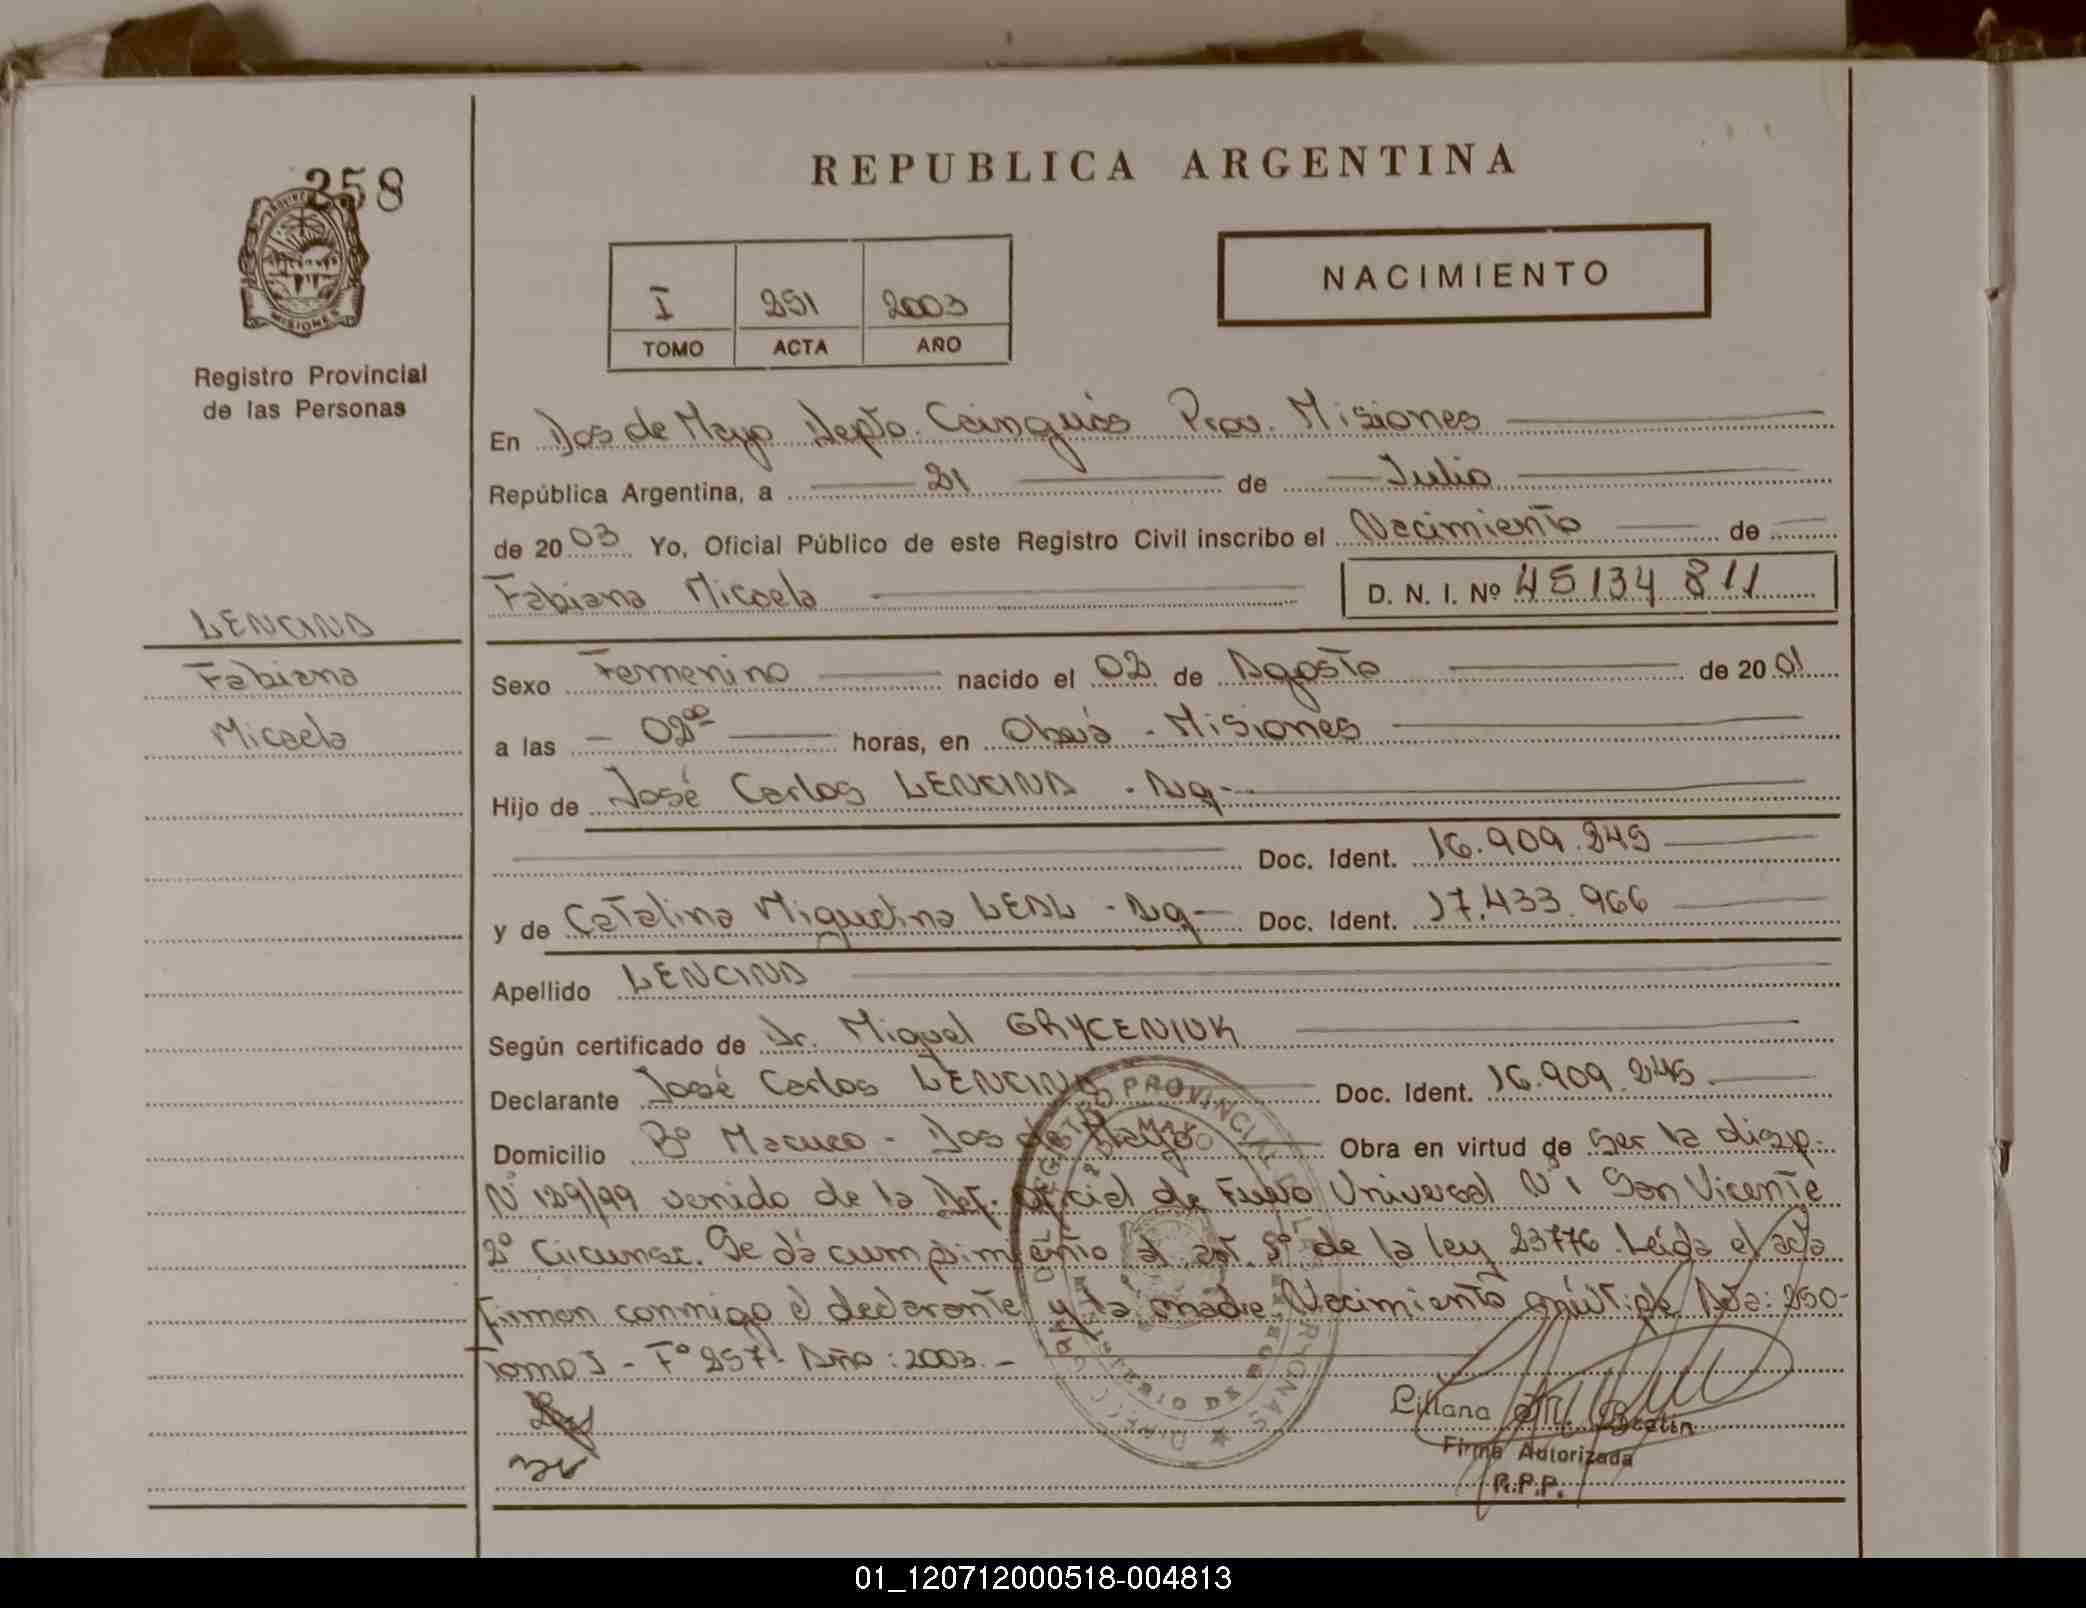 258
PROVINCIA
MISIONES
Registro Provincial
de las Personas
REPUBLICA ARGENTINA
NACIMIENTO
I 251 2003
TOMO ACTA AÑO
En Dos de Mayo Depto. Cainguás Prov. Misiones
República Argentina, a 21 de Julio
de 2003 Yo, Oficial Público de este Registro Civil inscribo el Nacimiento de
Fabiana Micaela D. N. I. Nº 45134 811
LENCINA
Fabiana
Micaela
Sexo Femenino nacido el 02 de Agosto de 2001
a las 02⁰⁰ horas, en Oberá - Misiones
Hijo de José Carlos LENCINA - Ag-
Doc. Ident. 16.909.245
y de Catalina Miguelina LEAL - Ag- Doc. Ident. 17.433.966
Apellido LENCINA
Según certificado de Dr. Miguel GRYCENIUK
Declarante José Carlos LENCINA Doc. Ident. 16.909.245
Domicilio Bº Macuco - Dos de Mayo Obra en virtud de ser la disp.
Nº 129/99 venido de la Def. Oficial de Fuero Universal Nº 1 San Vicente
2º Circunsc. Se dá cumplimiento al art. 5º de la ley 23776. Leída el acta
firman conmigo el declarante y la madre. Nacimiento múltiple Acta: 250-
Tomo I - Fº 257- Año: 2003.-
REGISTRO PROVINCIAL DE LAS PERSONAS
2 DE MAYO
MINISTERIO DE
Liliana
Firma Autorizada
R.P.P.
01_120712000518-004813